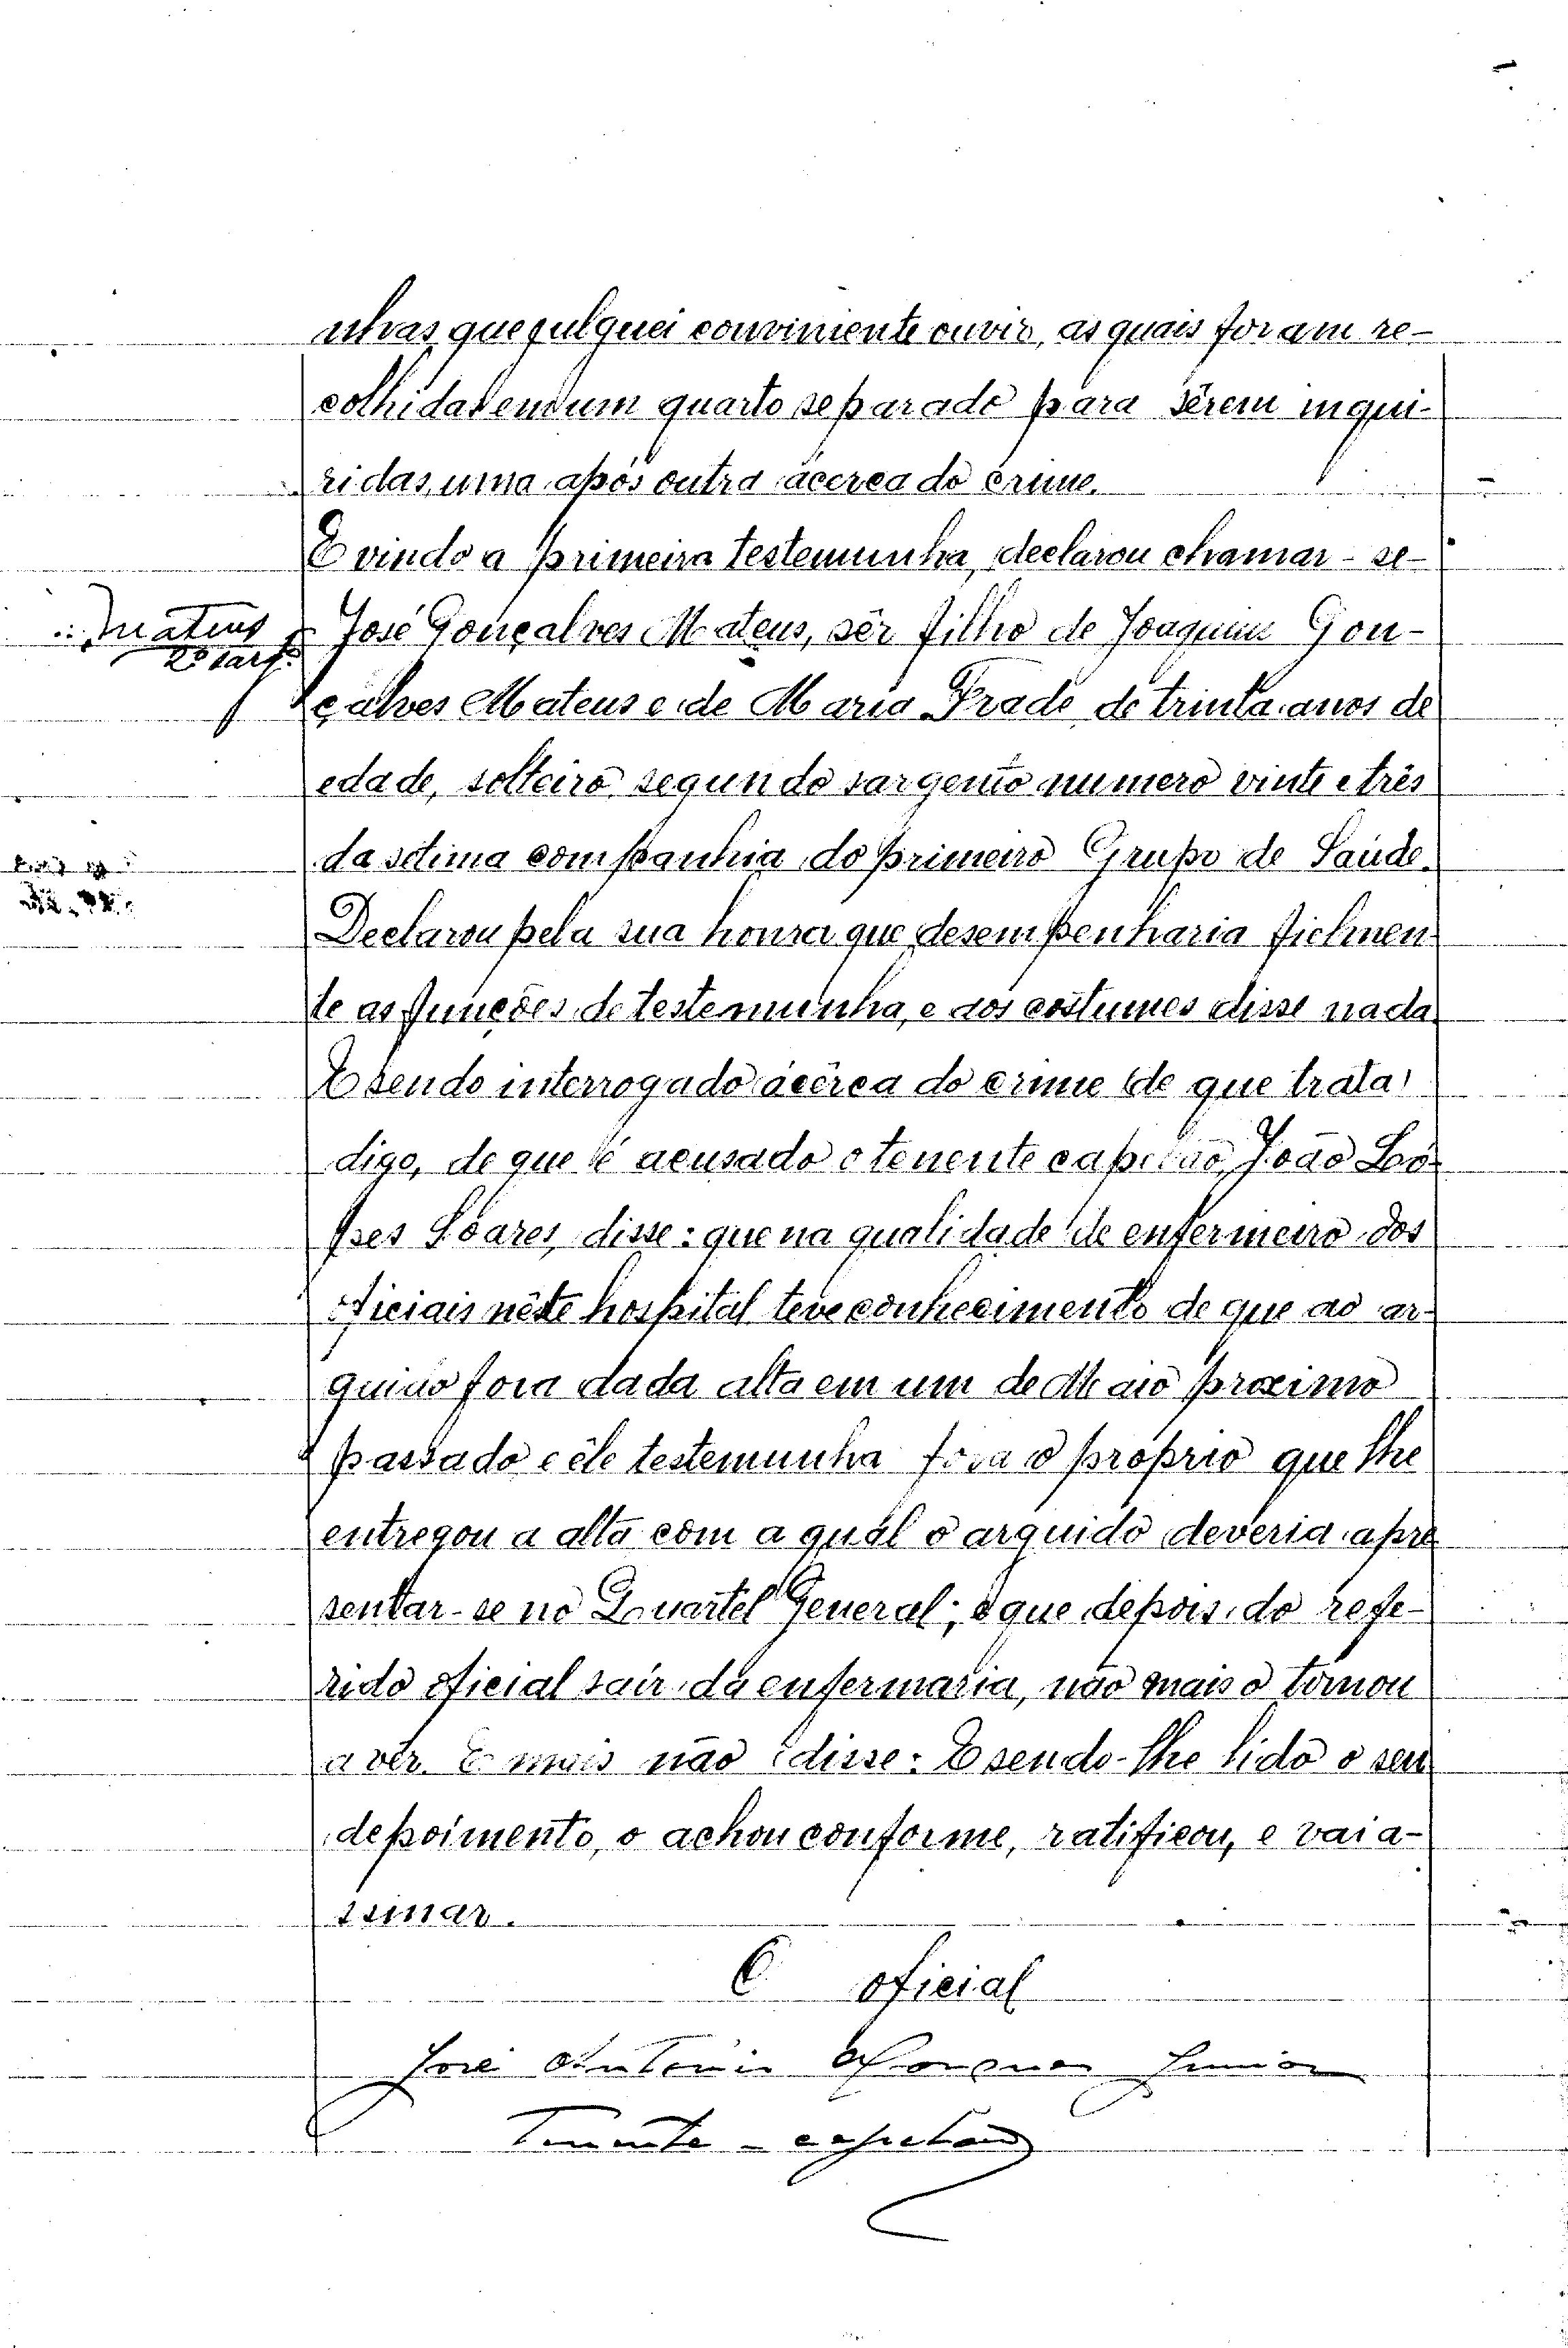 nhas que julguei conviniente ouvir, as quais foram re-
colhidas em um quarto separado para sêrem inqui-
ridas, uma após outra ácerca do crime.
E vindo a primeira testemunha, declarou chamar-se-
Mateus
2º sarg.
José Gonçalves Mateus, sêr filho de Joaquim Gon-
çalves Mateus e de Maria Frade de trinta anos de
edade, solteiro segundo sargento numero vinte e três
da setima companhia do primeiro Grupo de Saúde.
Declarou pela sua honra que desempenharia fielmen-
te as funcões de testemunha, e aos costumes disse nada.
E sendo interrogado ácêrca do crime de que trata
digo, de que é acusado o tenente capelão João Lo-
pes Soares, disse: que na qualidade de enfermeiro dos
oficiais nêste hospital teve conhecimento de que ao ar-
guido fora dada alta em um de Maio proximo
passado e êle testemunha fora o proprio que lhe
entregou a alta com a qual o arguido deveria apre
sentar-se no Quartel General; e que depois do refe-
rido oficial sair da enfermaria, não mais o tornou
a vêr. E mais não disse. E sendo-lhe lido o seu
depoimento, o achou conforme, ratificou, e vai a-
ssinar.
O oficial
José Antonio Marques Junior
Tenente-capelão